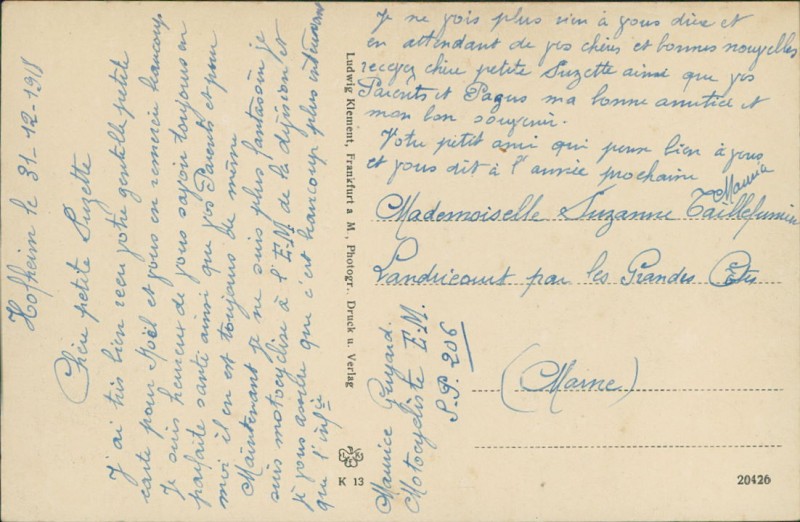 Hofheim le 31-12-1918
Chère petite Suzette
J'ai très bien reçu votre gentille petite
carte pour Noël et vous en remercie beaucoup
Je suis heureux de vous savoir toujours en
parfaite santé ainsi que vos Parents et pour
moi il en est toujours de même
Maintenant je ne suis plus fantassin je
suis motocycliste à l'E.M. de la division et
je vous assure que c'est beaucoup plus intéressant
que l'infie
Je ne vois plus rien à vous dire et
en attendant de vos chères et bonnes nouvelles
recevez chère petite Suzette ainsi que vos
Parents et Pagus ma bonne amitiée et
mon bon souvenir.
Votre petit ami qui pense bien à vous
et vous dit à l'année prochaine
Maurice
Mademoiselle Suzanne Taillefumier
Landricourt par les Grandes Côtes
(Marne)
Maurice Guyard.
Motocycliste E.M.
S.P. 206
Ludwig Klement, Frankfurt a M. Photogr. Druck u. Verlag
K 13
20426